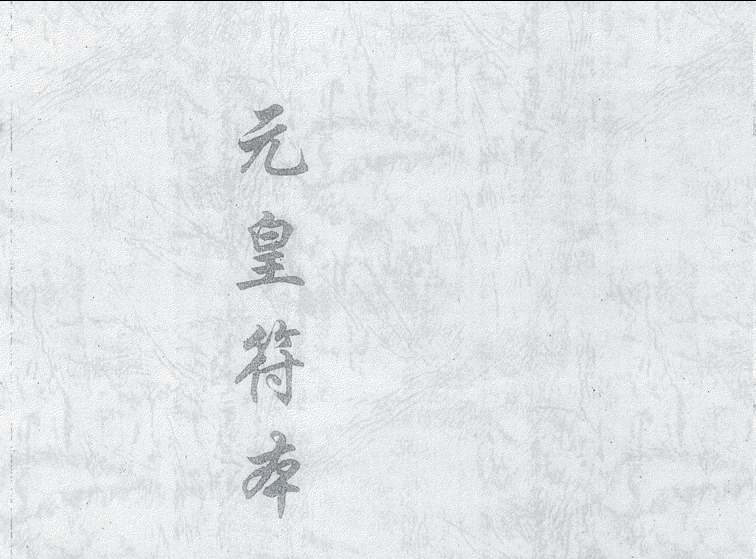 元皇符本